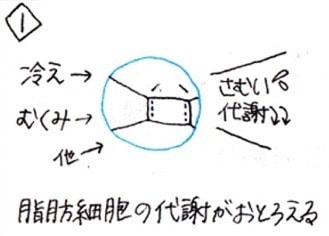 1
冷え→
むくみ→
他→
さむい
代謝↓↓
脂肪細胞の代謝がおとろえる